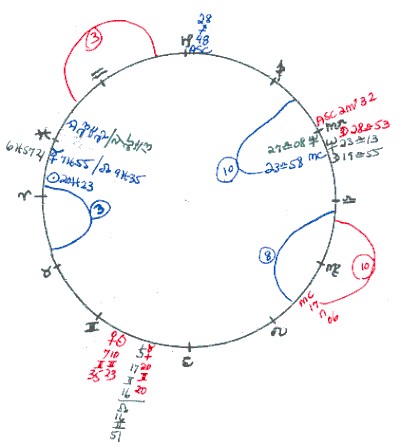 28
♐
48
ASC
♑
③
♒
♐
ASC 2♏32
♏
☽ 28♎53
27♎08
23♎13
23♎58 MC
☽ 19♎55
⑩
♓
6♓57
♀ 7♓55/☊ 9♓35
☉20♓23
♈
③
♎
⑧
⑩
♍
MC
17
♌
06
♌
♉
♊
♋
♀☉
7 10
♊ ♊
35 23
5
17 20
♊ ♊
16 20
16
♊
51